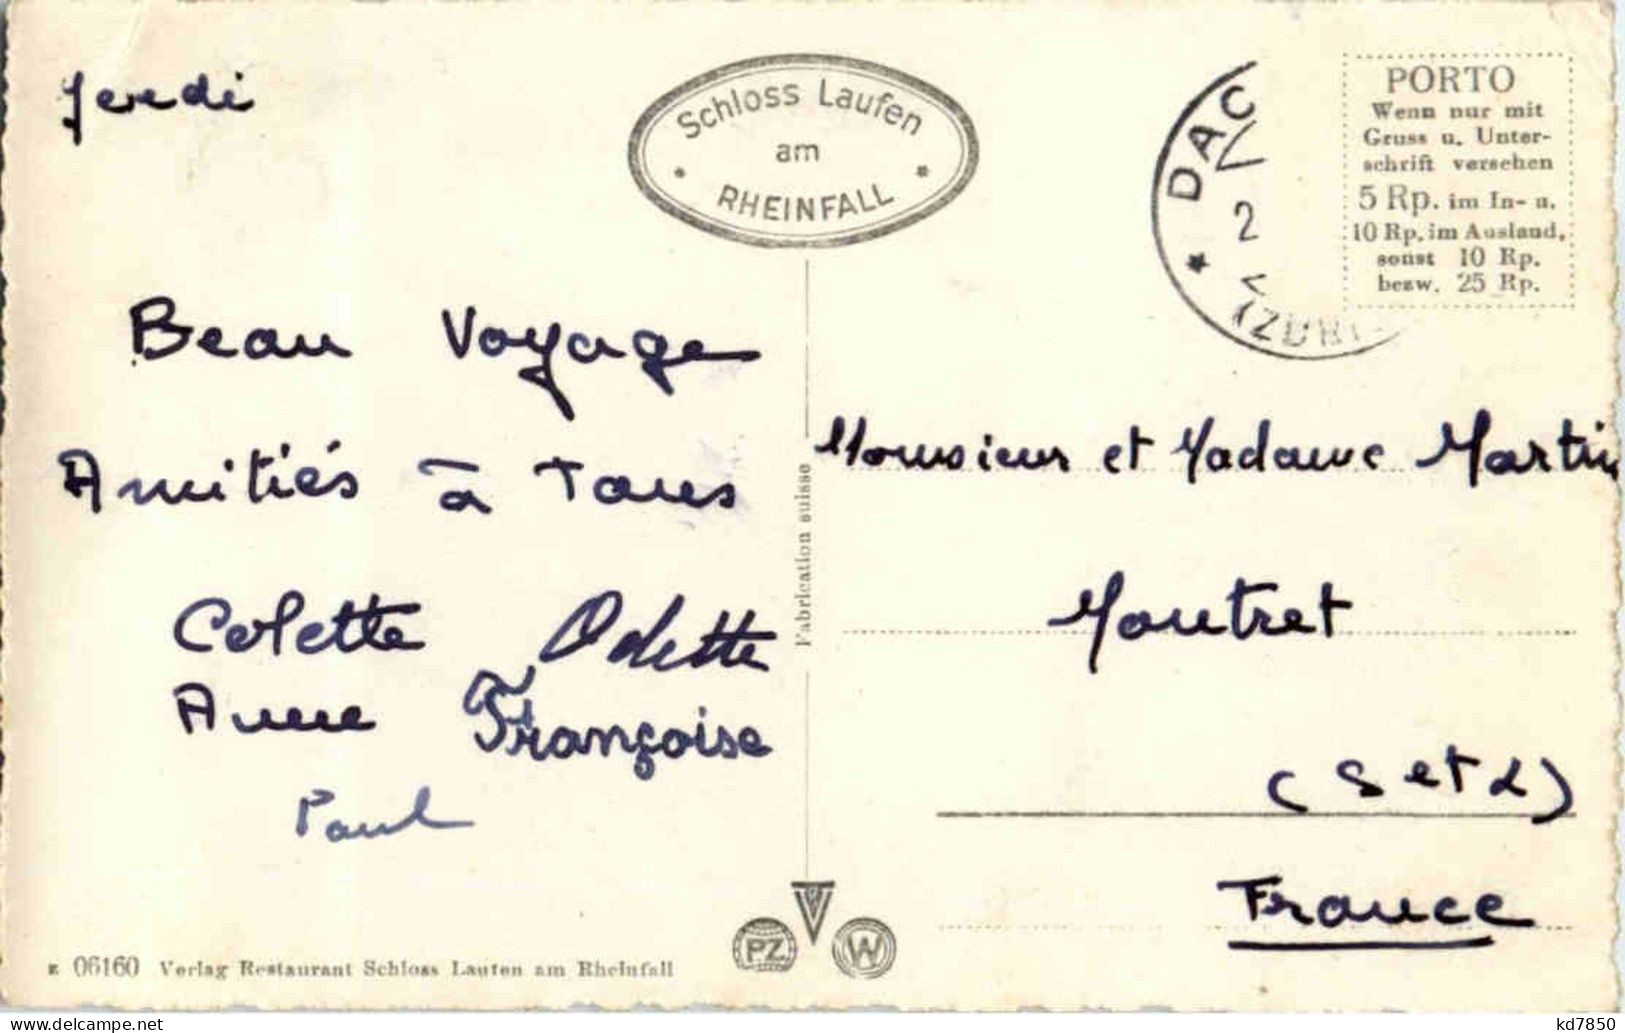 Jeudi
Schloss Laufen
am
RHEINFALL
DAC
2
(ZÜRI
PORTO
Wenn nur mit
Gruss u. Unter-
schrift versehen
5 Rp. im In- u.
10 Rp. im Ausland,
sonst 10 Rp.
bezw. 25 Rp.
Beau Voyage
Amitiés à Tous
Colette Odette
Anne Françoise
Paul
Fabrication suisse
Monsieur et Madame Martin
Montret
(S et L)
France
PZ W
06160 Verlag Restaurant Schloss Laufen am Rheinfall
kd7850